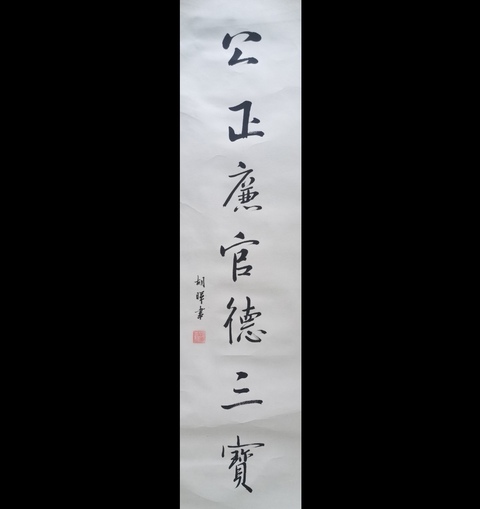 公正廉官德三寶
胡暉書